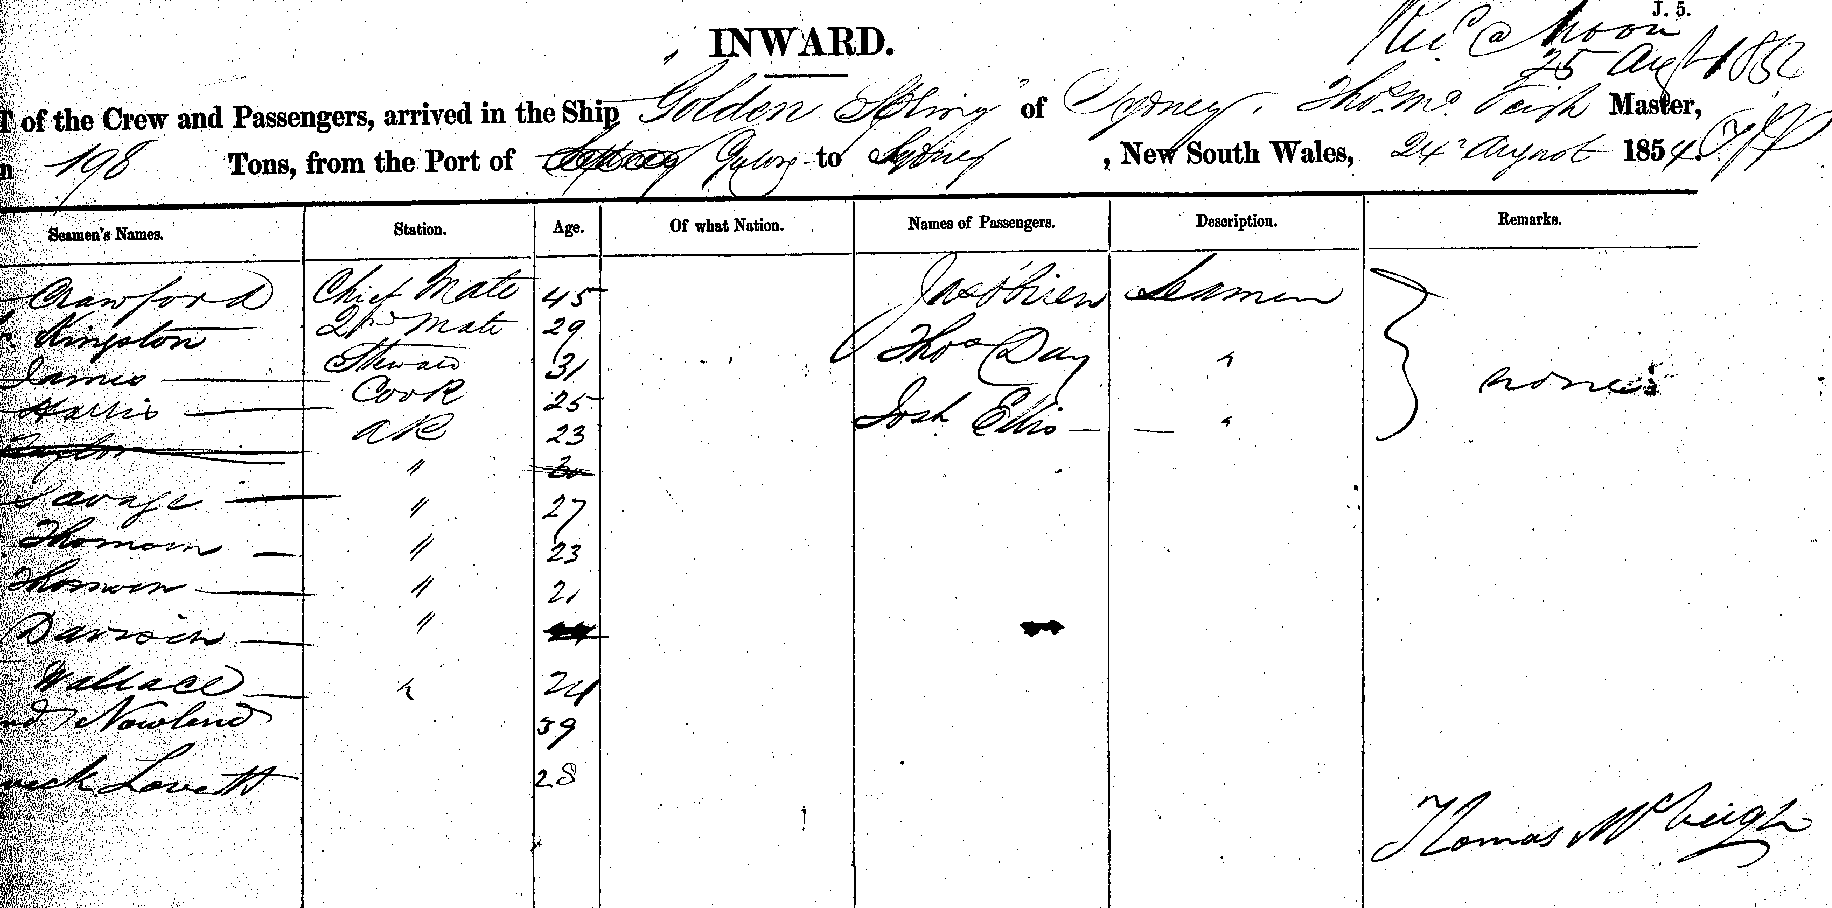 J. 5.
INWARD.
Noon
25 Augt 185
of the Crew and Passengers, arrived in the Ship "Golden Spring" of Sydney, Thos. Mc Veigh Master,
198 Tons, from the Port of to Sydney, New South Wales, 24th August 1854.
Seamen's Names. Station. Age. Of what Nation. Names of Passengers. Description. Remarks.
Crawford Chief Mate 45 Jas O'Brien Seaman
Kingston 2nd Mate 29 Thos Day "
James Steward 31 none
Harris Cook 25 Josh Ellis "
AB 23
Taylor "
Savage " 27
Thomson " 23
Thomson " 21
Davison "
Wallace " 24
Nowland 39
Lovett 28
Thomas McVeigh